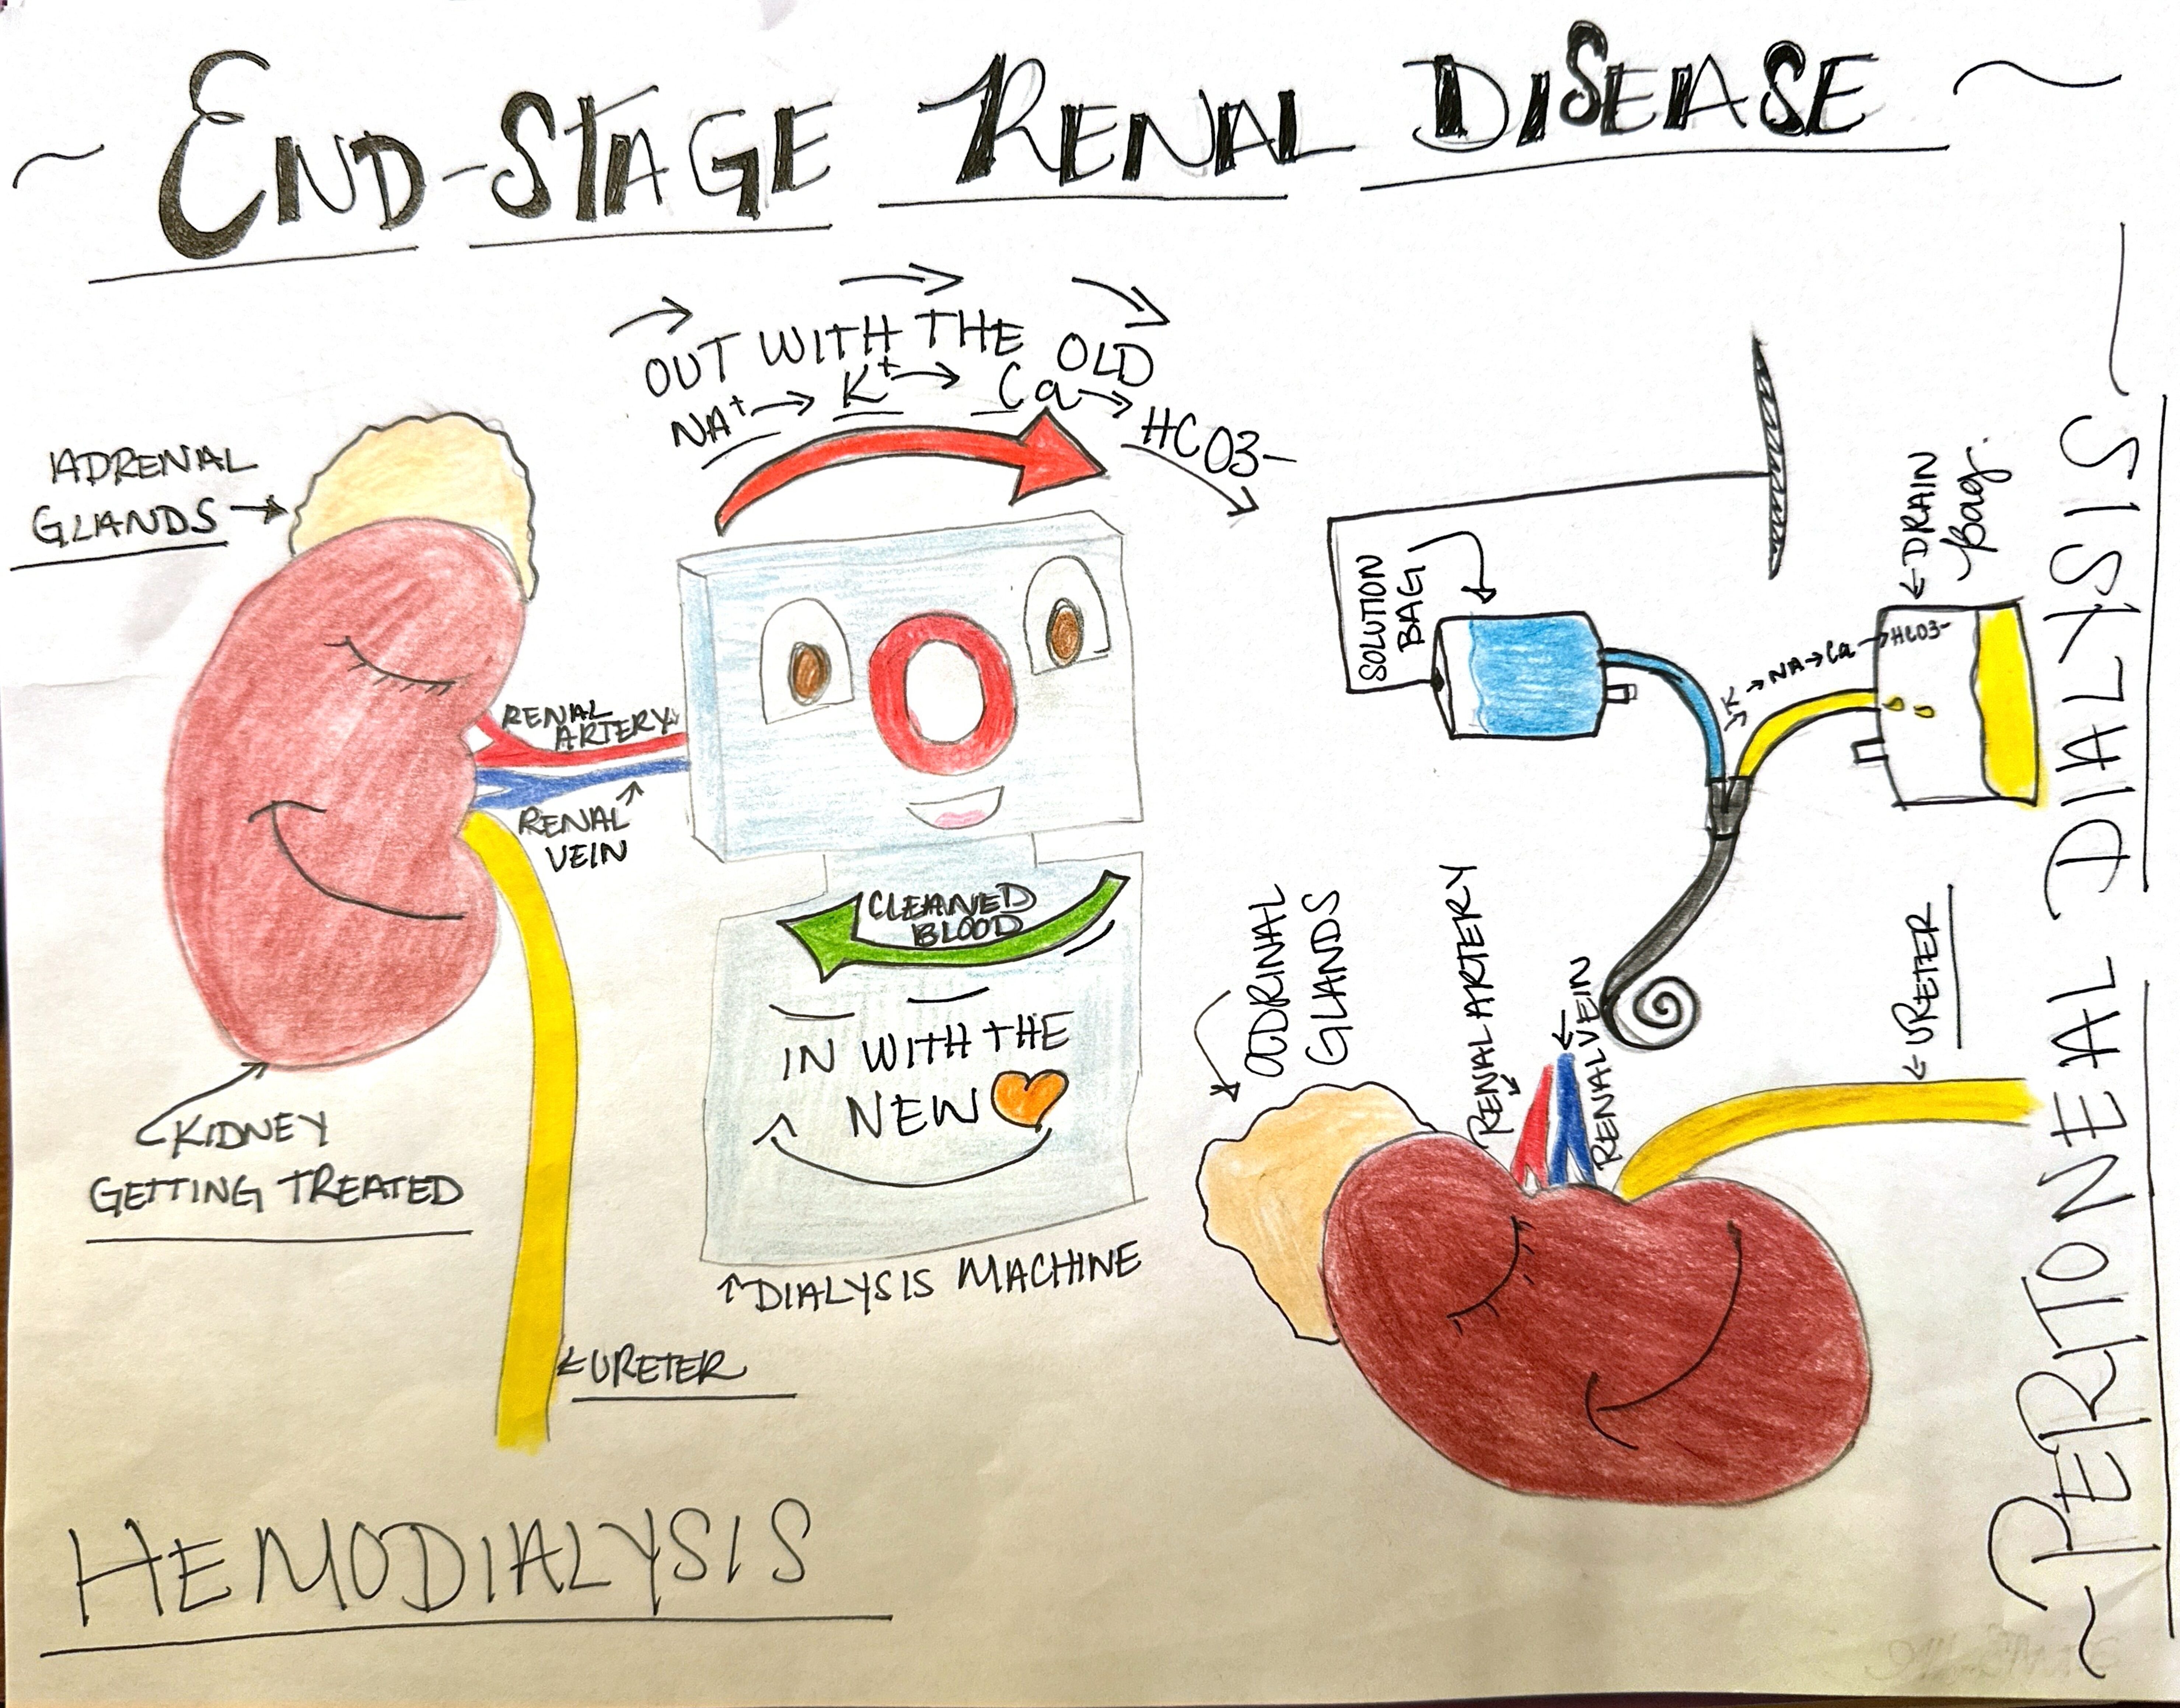 ~ END-STAGE RENAL DISEASE ~
OUT WITH THE OLD
NA+ → K+ → Ca → HCO3-
ADRENAL
GLANDS →
RENAL
ARTERY
RENAL
VEIN
CLEANED
BLOOD
IN WITH THE
NEW
KIDNEY
GETTING TREATED
↑ DIALYSIS MACHINE
← URETER
HEMODIALYSIS
SOLUTION
BAG
← DRAIN
Bag
K → NA → Ca → HCO3-
ADRINAL
GLANDS
RENAL ARTERY
RENAL VEIN
← URETER
~ PERITONEAL DIALYSIS ~